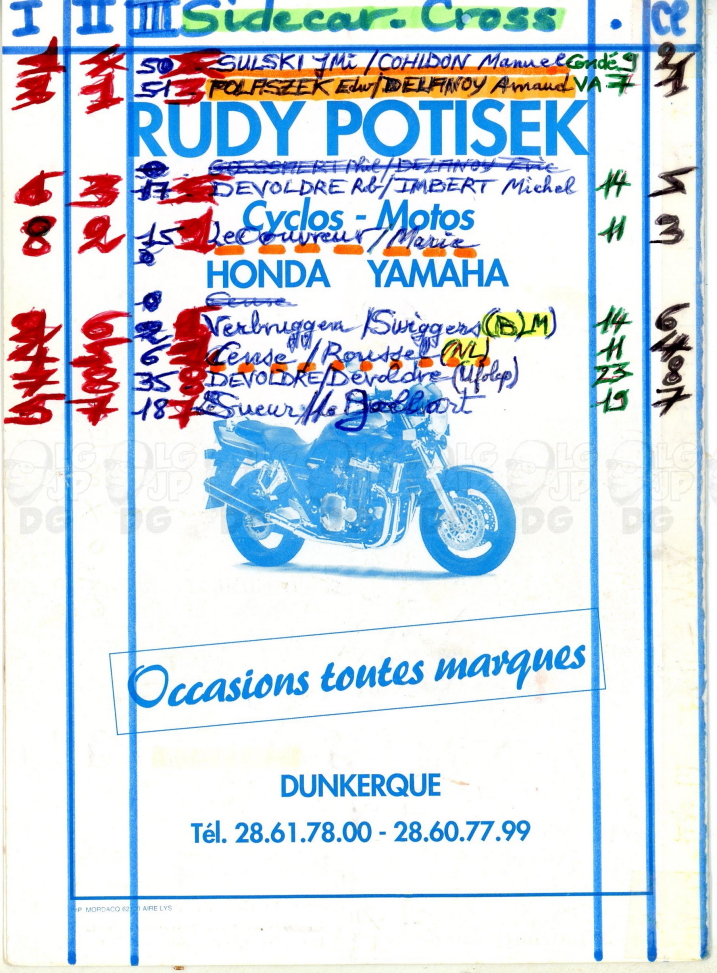 I II III Sidecar. Cross . Cl
50 SULSKI JMi / COHIDON Manuel Condé 9 2
51 POLASZEK Edw/DELANOY Arnaud VA 7 1
RUDY POTISEK
6 3 17 DEVOLDRE Rb/IMBERT Michel 14 5
Cyclos - Motos
8 2 15 LeCouvreur/Marie 11 3
HONDA YAMAHA
Cense
2 Verbruggen /Swiggers (B) LM) 14 6
6 Cense / Roussel (NL) 11 4
35 DEVOLDRE/Devoldre (Ufolep) 23 8
5 7 18 7
LG JP DG
Occasions toutes marques
DUNKERQUE
Tél. 28.61.78.00 - 28.60.77.99
MORDACQ AIRE LYS